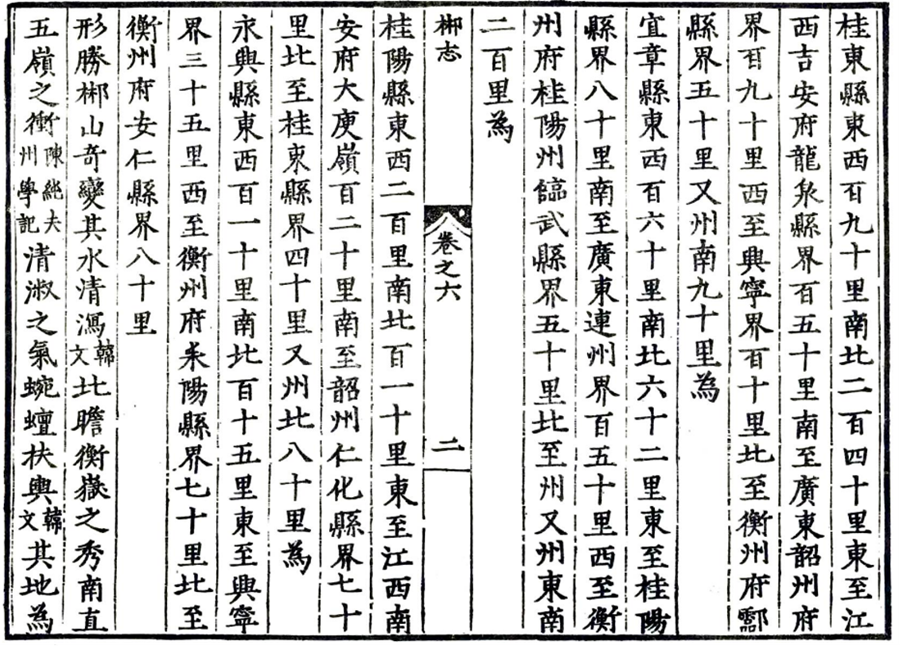 桂東縣東西百九十里南北二百四十里東至江
西吉安府龍泉縣界百五十里南至廣東韶州府
界百九十里西至興寧界百十里北至衡州府酃
縣界五十里又州南九十里為
宜章縣東西百六十里南北六十二里東至桂陽
縣界八十里南至廣東連州界百五十里西至衡
州府桂陽州臨武縣界五十里北至州又州東南
二百里為
郴志
卷之六
二
桂陽縣東西二百里南北百一十里東至江西南
安府大庾嶺百二十里南至韶州仁化縣界七十
里北至桂東縣界四十里又州北八十里為
永興縣東西百一十里南北百十五里東至興寧
界三十五里西至衡州府耒陽縣界七十里北至
衡州府安仁縣界八十里
形勝郴山奇變其水清瀉韓文北瞻衡嶽之秀南直
五嶺之衝陳純夫州學記清淑之氣蜿蟺扶輿韓文其地為